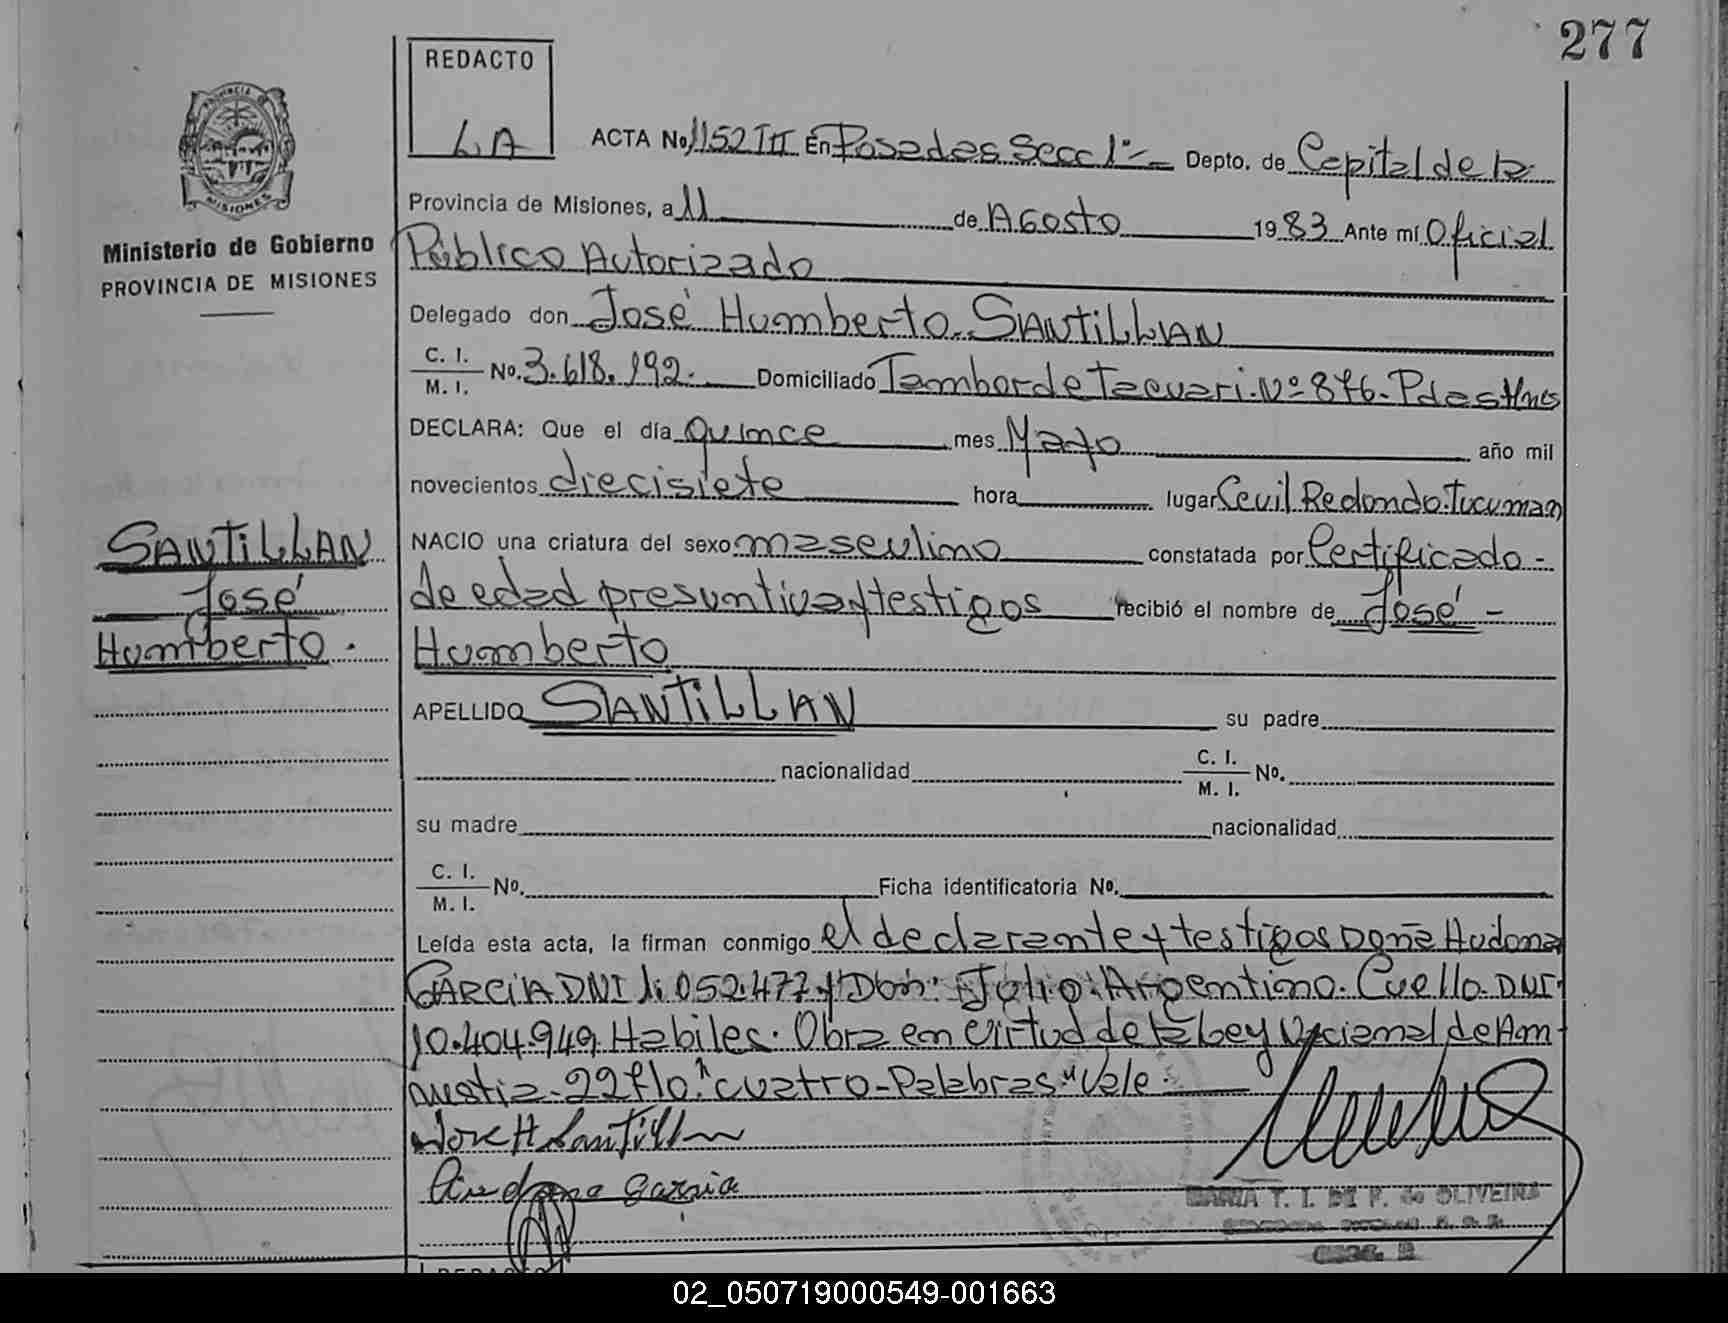 277
REDACTO
LA
PROVINCIA DE
MISIONES
Ministerio de Gobierno
PROVINCIA DE MISIONES
ACTA No. 1152 III En Posadas Secc 1º Depto. de Capital de la
Provincia de Misiones, a 11 de Agosto 1983 Ante mí Oficial
Público Autorizado
Delegado don José Humberto SANTILLAN
C. I.
M. I. No. 3.618.192. Domiciliado Tambor de Tacuari. Nº 876. Pdas Mnes
DECLARA: Que el día quince mes Mayo año mil
novecientos diecisiete hora lugar Cevil Redondo. Tucuman
NACIO una criatura del sexo masculino constatada por Certificado -
de edad presuntiva y testigos recibió el nombre de José -
Humberto
APELLIDO SANTILLAN su padre
nacionalidad C. I.
M. I. No.
su madre nacionalidad
C. I.
M. I. No. Ficha identificatoria No.
SANTILLAN
José
Humberto.
Leída esta acta, la firman conmigo el declarante y testigos Doña Audona
GARCIA DNI 1.052.477 y Don: Julio Argentino. Cuello. DNI.
10.404.949. Habiles. Obra en virtud de la Ley Nacional de Am-
nistia. 22910. "cuatro-Palabras" Vale.
Jose H Santillan
Audona Garcia
MARIA T. I. DI P. de OLIVEIRA
REDACTO
02_050719000549-001663